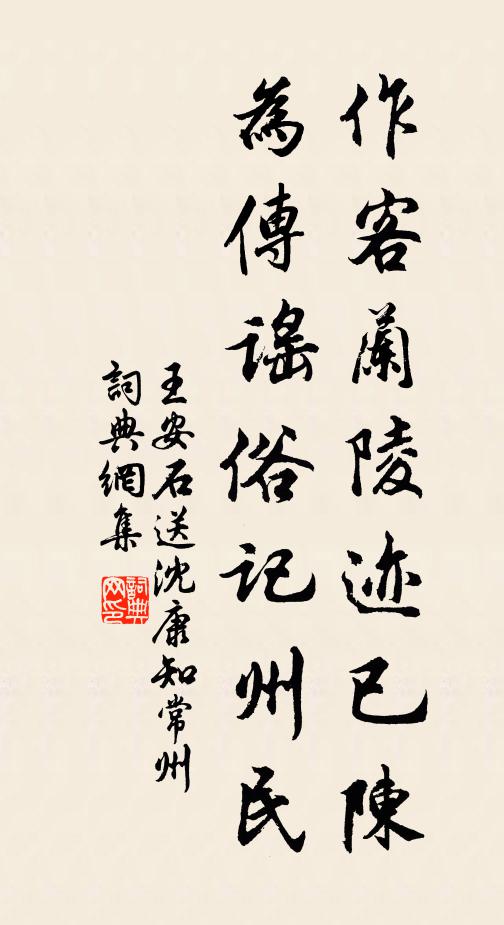 作客蘭陵迹已陳
為傳謡俗記州民
王安石送沈康知常州
詞典網集
詞典網印